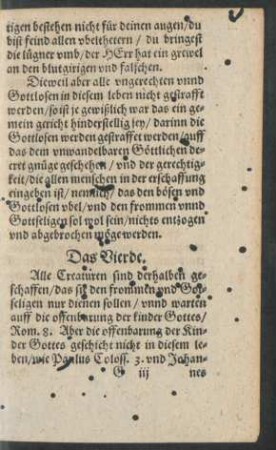 tigen bestehen nicht für deinen augen/du
bist feind allen vbelthetern / du bringest
die lügner vmb/ der HErr hat ein grewel
an den blutgirigen vnd falschen.
Dieweil aber alle vngerechten vnnd
Gottlosen in diesem leben nicht gestrafft
werden/so ist je gewißlich war das ein ge-
mein gericht hinderstellig sey/ darinn die
Gottlosen werden gestraffet werden/auff
das dem vnwandelbaren Göttlichen de-
cret gnüge geschehen / vnd der gerechtig-
keit/die allen menschen in der erschaffung
eingeben ist/ nemlich/ das den bösen vnd
Gottlosen vbel/ vnd den frommen vnnd
Gottseligen sol wol sein/nichts entzogen
vnd abgebrochen möge werden.
Das Vierde.
Alle Creaturen sind derhalben ge-
schaffen/das sie den frommen vnd Gott-
seligen nur dienen sollen / vnnd warten
auff die offenbarung der kinder Gottes/
Rom. 8. Aber die offenbarung der Kin-
der Gottes geschicht nicht in diesem le-
ben/wie Paulus Coloss. 3. vnd Johan-
G iij nes